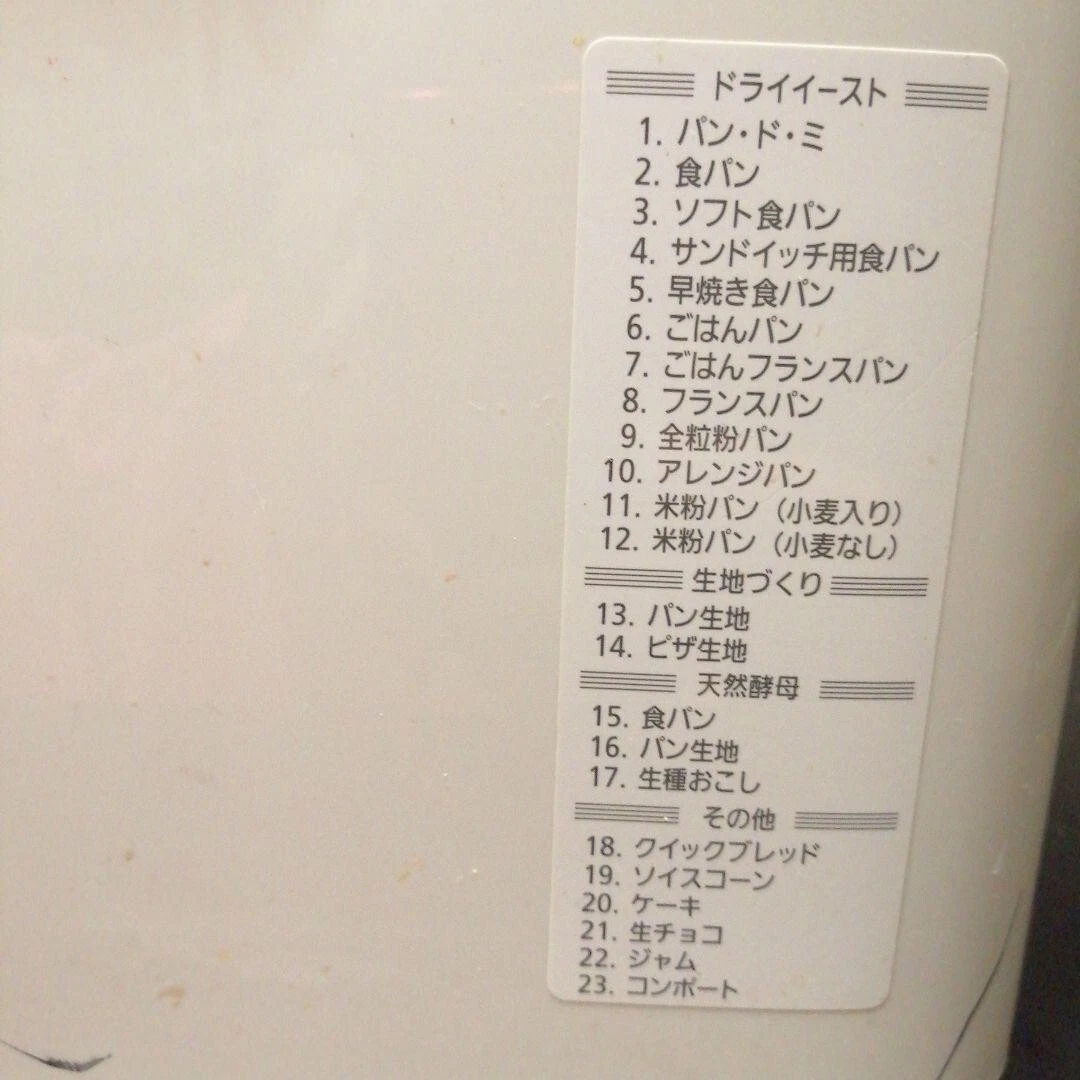 ドライイースト
1. パン・ド・ミ
2. 食パン
3. ソフト食パン
4. サンドイッチ用食パン
5. 早焼き食パン
6. ごはんパン
7. ごはんフランスパン
8. フランスパン
9. 全粒粉パン
10. アレンジパン
11. 米粉パン（小麦入り）
12. 米粉パン（小麦なし）
生地づくり
13. パン生地
14. ピザ生地
天然酵母
15. 食パン
16. パン生地
17. 生種おこし
その他
18. クイックブレッド
19. ソイスコーン
20. ケーキ
21. 生チョコ
22. ジャム
23. コンポート